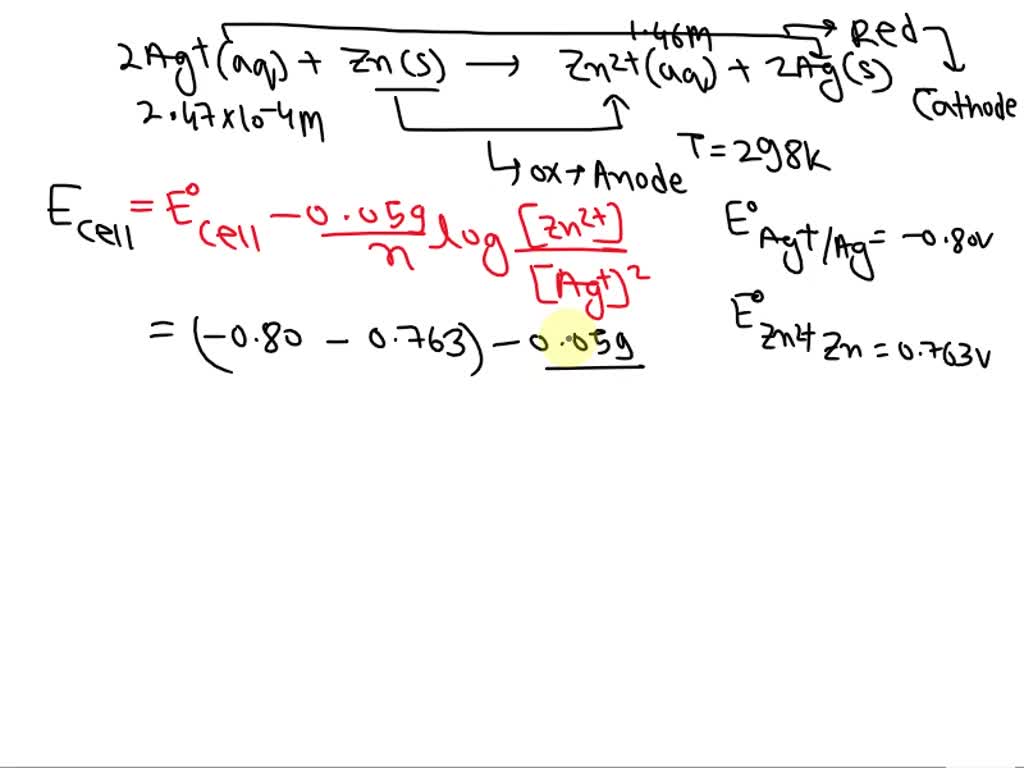 1.46M → Red
2Ag+(aq) + Zn(s) → Zn2+(aq) + 2Ag(s)
Cathode
2.47×10-4M
T = 298K
↳ ox → Anode
Ecell = E°cell - 0.059/n log [Zn2+]/[Ag+]2
E°Ag+/Ag = -0.80V
= (-0.80 - 0.763) - 0.059
E°Zn2+ Zn = 0.763V